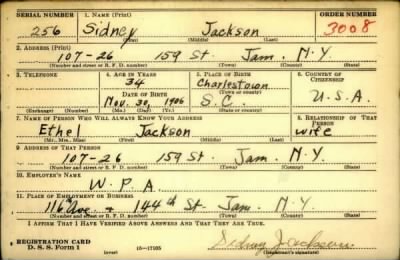 SERIAL NUMBER 1. NAME (Print) ORDER NUMBER
256 Sidney Jackson 3008
(First) (Middle) (Last)
2. ADDRESS (Print)
107-26 159 St. Jam. N.Y.
(Number and street or R. F. D. number) (Town) (County) (State)
3. TELEPHONE 4. AGE IN YEARS 5. PLACE OF BIRTH 6. COUNTRY OF CITIZENSHIP
34 Charlestown
DATE OF BIRTH (Town or county)
Nov. 30, 1906 S.C. U.S.A.
(Exchange) (Number) (Mo.) (Day) (Yr.) (State or country)
7. NAME OF PERSON WHO WILL ALWAYS KNOW YOUR ADDRESS 8. RELATIONSHIP OF THAT PERSON
Ethel Jackson wife
(Mr., Mrs., Miss) (First) (Middle) (Last)
9. ADDRESS OF THAT PERSON
107-26 159 St. Jam. N.Y.
(Number and street or R. F. D. number) (Town) (County) (State)
10. EMPLOYER'S NAME
W.P.A.
11. PLACE OF EMPLOYMENT OR BUSINESS
116th Ave. + 144th St. Jam. N.Y.
(Number and street or R. F. D. number) (Town) (County) (State)
I AFFIRM THAT I HAVE VERIFIED ABOVE ANSWERS AND THAT THEY ARE TRUE.
REGISTRATION CARD
D. S. S. Form 1 (over) 16—17105 Sidney Jackson
(Registrant's signature)